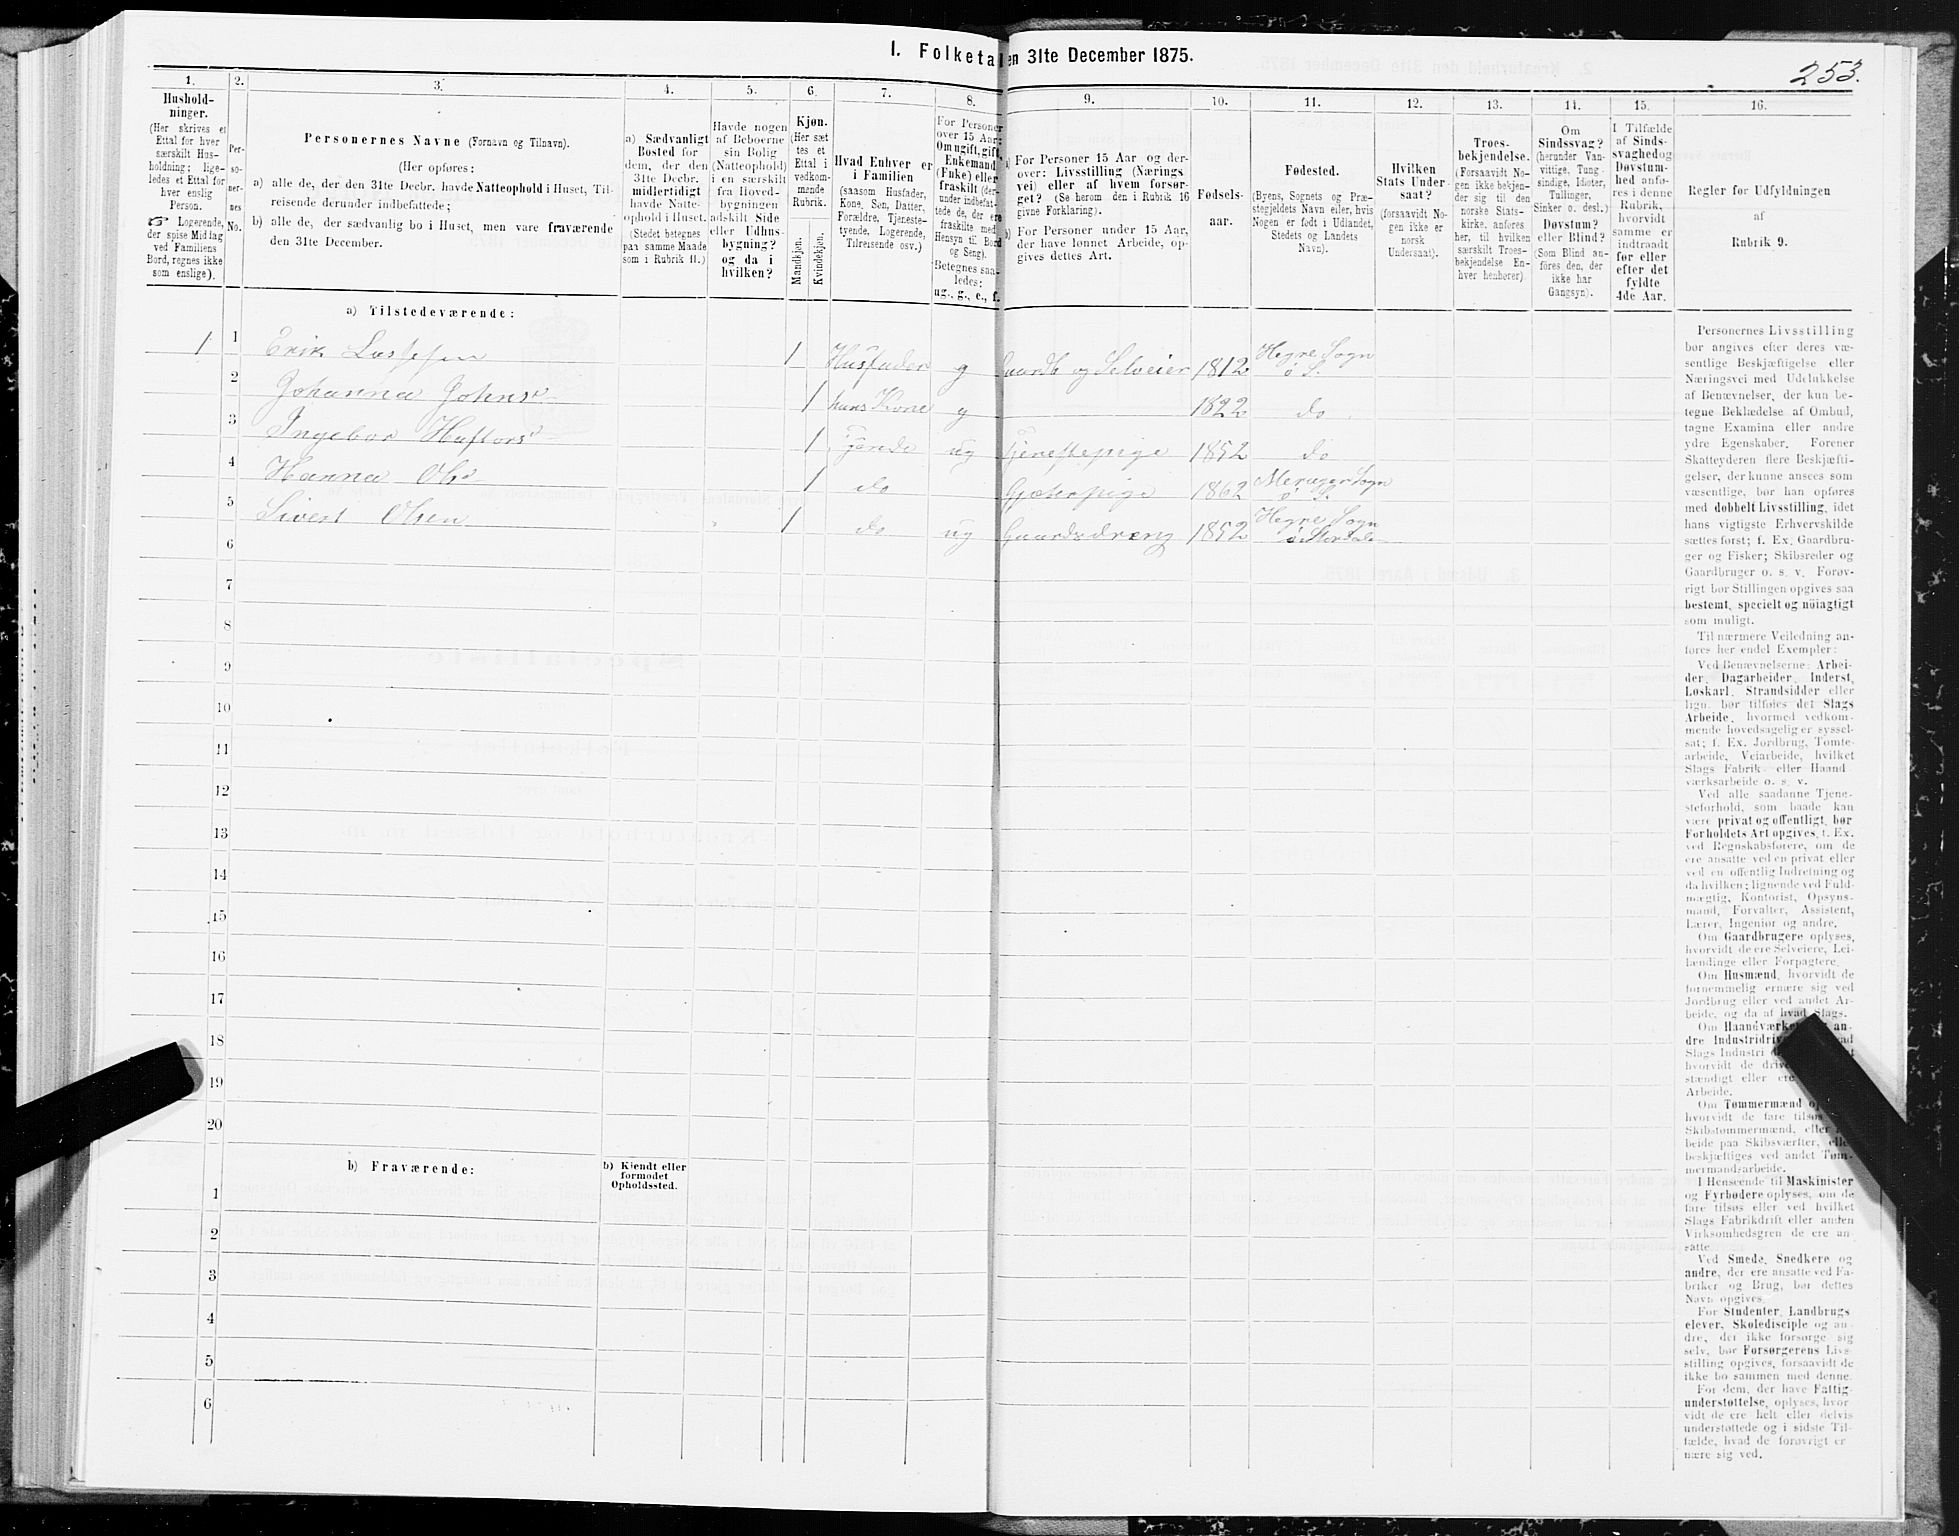 I. Folketal en 31te December 1875.
253.
1.
Hushold-
ninger.
(Her skrives et
Ettal for hver
særskilt Hus-
holdning; lige-
ledes et Ettal for
hver enslig
Person.
☞ Logerende,
der spise Middag
ved Familiens
Bord, regnes ikke
som enslige).
2.
Per-
so-
ner-
nes
No.
3.
Personernes Navne (Fornavn og Tilnavn).
(Her opføres:
a) alle de, der den 31te Decbr. havde Natteophold i Huset, Til-
reisende derunder indbefattede;
b) alle de, der sædvanlig bo i Huset, men vare fraværende
den 31te December.
4.
a) Sædvanligt
Bosted for
dem, der den
31te Decbr.
midlertidigt
havde Natte-
ophold i Huset.
(Stedet betegnes
paa samme Maade
som i Rubrik 11.)
5.
Havde nogen
af Beboerne
sin Bolig
(Natteophold)
i en særskilt
fra Hoved-
bygningen
adskilt Side
eller Udhus-
bygning?
og da i
hvilken?
6.
Kjøn.
(Her sæt
tes et
Ettal i
vedkom-
mende
Rubrik.
Mandkjøn.
Kvindekjøn.
7.
Hvad Enhver er
i Familien
(saasom Husfader,
Kone, Søn, Datter,
Forældre, Tjeneste-
tyende, Logerende,
Tilreisende osv.)
8.
For Personer
over 15 Aar:
Om ugift, gift,
Enkemand
(Enke) eller
fraskilt (der-
under indbefat-
tede de, der ere
fraskilte med
Hensyn til Bord
og Seng).
Betegnes saa-
ledes:
ug., g., e., f.
9.
a) For Personer 15 Aar og der-
over: Livsstilling (Nærings
vei) eller af hvem forsør-
get? (Se herom den i Rubrik 16
givne Forklaring).
b) For Personer under 15 Aar,
der have lønnet Arbeide, op-
gives dettes Art.
10.
Fødsels-
aar.
11.
Fødested.
(Byens, Sognets og Præ-
stegjeldets Navn eller, hvis
Nogen er født i Udlandet,
Stedets og Landets
Navn).
12.
Hvilken
Stats Under-
saat?
(forsaavidt No-
gen ikke er
norsk
Undersaat).
13.
Troes-
bekjendelse.
(Forsaavidt No-
gen ikke bekjen-
der sig til den
norske Stats-
kirke, anføres
her, til hvilken
særskilt Troes-
bekjendelse En-
hver henhører)
14.
Om
Sindssvag?
(herunder Van-
vittige, Tung-
sindige, Idioter,
Tullinger,
Sinker o. desl.)
Døvstum?
eller Blind?
(Som Blind an-
føres den, der
ikke har
Gangsyn).
15.
I Tilfælde
af Sinds-
svaghed og
Døvstum-
hed anfø-
res i denne
Rubrik,
hvorvidt
samme er
indtraadt
før eller
efter det
fyldte
4de Aar.
16.
Regler for Udfyldningen
af
Rubrik 9.
a) Tilstedeværende:
1 1 Erik Lassesen 1 Husfader g Gaardb og Selveier 1812 Hegre Sogn
ø S.
2 Johanna Johnsd 1 hans Kone g 1822 do
3 Ingebor Haftorsd 1 Tjende ug Tjenestepige 1852 do
4 Hanna Olsd 1 do Gjæterpige 1862 Merager Sogn
ø S.
5 Sivert Olsen 1 do ug Gaardsdreng 1852 Hegre Sogn
ø Stordalen
6
7
8
9
10
11
12
13
14
15
16
17
18
19
20
b) Fraværende:
b) Kjendt eller
formodet
Opholdssted.
1
2
3
4
5
6
Personernes Livsstilling
bør angives efter deres væ-
sentlige Beskjæftigelse eller
Næringsvei med Udelukkelse
af Benævnelser, der kun be-
tegne Beklædelse af Ombud,
tagne Examina eller andre
ydre Egenskaber. Forener
Skatteyderen flere Beskjæfti-
gelser, der kunne ansees som
væsentlige, bør han opføres
med dobbelt Livsstilling, idet
hans vigtigste Erhvervskilde
sættes først; f. Ex. Gaardbru-
ger og Fisker; Skibsreder og
Gaardbruger o. s. v. Forøv-
rigt bør Stillingen opgives saa
bestemt, specielt og nöiagtigt
som muligt.
Til nærmere Veiledning an-
føres her endel Exempler:
Ved Benævnelserne: Arbei-
der, Dagarbeider, Inderst,
Løskarl, Strandsidder eller
lign. bør tilføies det Slags
Arbeide, hvormed vedkom-
mende hovedsagelig er syssel-
sat; f. Ex. Jordbrug, Tomte-
arbeide, Veiarbeide, hvilket
Slags Fabrik- eller Haand-
værksarbeide o. s. v.
Ved alle saadanne Tjene-
steforhold, som baade kan
være privat og offentligt, bør
Forholdets Art opgives, f. Ex.
ved Regnskabsførere, om de
ere ansatte ved en privat eller
ved en offentlig Indretning og
da hvilken; lignende ved Fuld-
mægtig, Kontorist, Opsyns-
mand, Forvalter, Assistent,
Lærer, Ingeniør og andre.
Om Gaardbrugere oplyses,
hvorvidt de ere Selveiere, Lei-
lændinge eller Forpagtere.
Om Husmænd, hvorvidt de
fornemmelig ernære sig ved
Jordbrug eller ved andet Ar-
beide, og da af hvad Slags.
Om Haandværke an-
dre Industridriv ad
Slags Industri
hvorvidt de driv
stændigt eller ere
Arbeide.
Om Tømmermænd op
hvorvidt de fare tilsøs
Skibstømmermænd, eller
beide paa Skibsværfter, elle
beskjæftiges ved andet Tøm-
mermandsarbeide.
I Henseende til Maskinister
og Fyrbødere oplyses, om de
fare tilsøs eller ved hvilket
Slags Fabrikdrift eller anden
Virksomhedsgren de ere an-
satte.
Ved Smede, Snedkere og
andre, der ere ansatte ved Fa-
briker og Brug, bør dettes
Navn opgives.
For Studenter, Landbrugs
elever, Skoledisciple og an-
dre, der ikke forsørge sig
selv, bør Forsørgerens Livs-
stilling opgives, forsaavidt de
ikke bo sammen med denne.
For dem, der have Fattig-
understøttelse, oplyses, hvor
vidt de ere helt eller delvis
understøttede og i sidste Til-
fælde, hvad de forøvrigt er
nære sig ved.